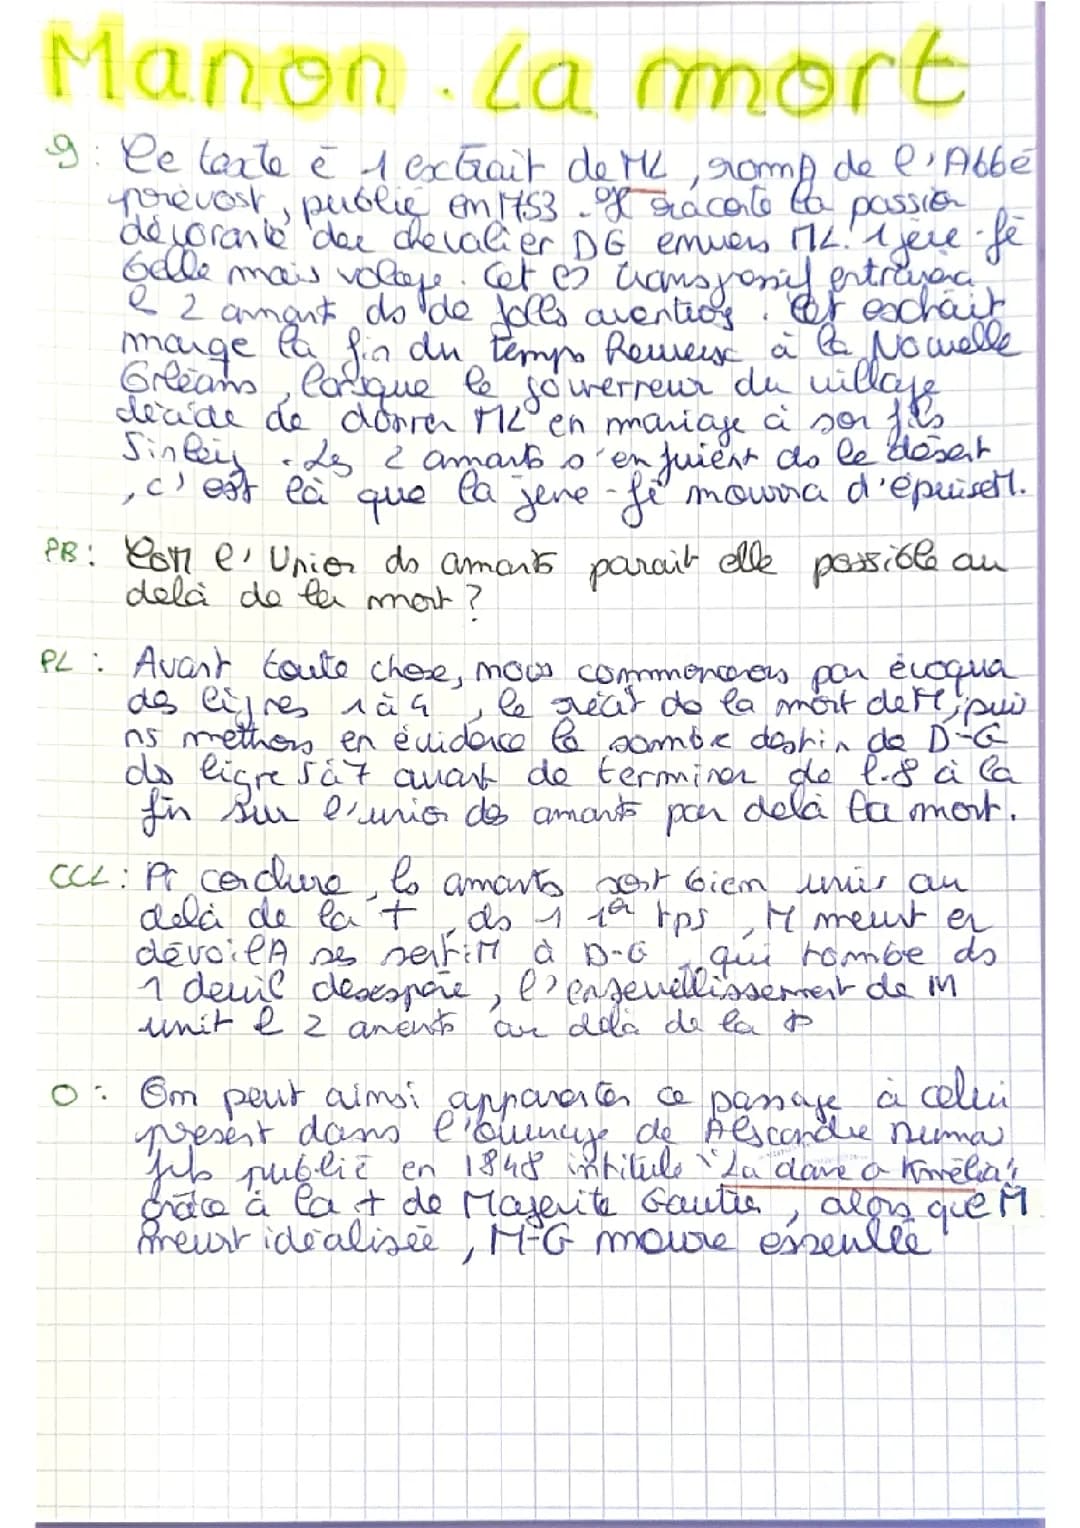 Manon. La mort
g : Ce texte ē 1 extrait de ML, rom de l'Abbé
prévost, publié en 1753. Il raconte la passion
dévorante du chevalier DG envers ML. 1 jeune-fē
belle mais volage. Cet transgressif entrainera
l 2 amant ds de folles aventures. Cet extrait
marque la fin du temps heureux à la Nouvelle
Orléans, lorsque le gouverneur du village
décide de donner ML en mariage à son fils
Sinleiy. Les 2 amants s'enfuient ds le désert
, c'est là que la jene-fē mourra d'épuiseM.
PB : ComM l'Union ds amants parait elle possible au
delà de la mort ?
PL : Avant toute chose, nous commencerons par évoqua
des lignes 1 à 4, le récit de la mort de M, puis
ns methons en évidence le sombre destin de D-G
ds ligne 5 à 7 avant de terminer de l.8 à la
fin sur l'union des amants par delà la mort.
CCL : Pr conclure, ls amants sont bien unis au
delà de la +, ds 1 1er tps, M meurt en
dévoilA ses sentiM à D-G, qui tombe ds
1 deuil desespéré, l'ensevellissement de M
unit l 2 amants au delà de la +
O : On peut ainsi apparenter ce passage à celui
présent dans l'ouvrage de Alscandre Dumas
fils publié en 1848 intitulé "La dame o Kmélia"
Grâce à la + de Magerite Gautier, alors que M
meurt idéalisée, M-G moure esseulée